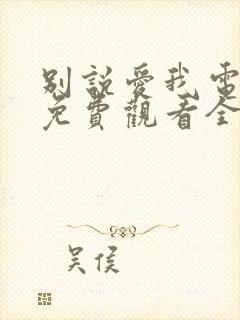 別說愛我電
免費觀看全
吳侯